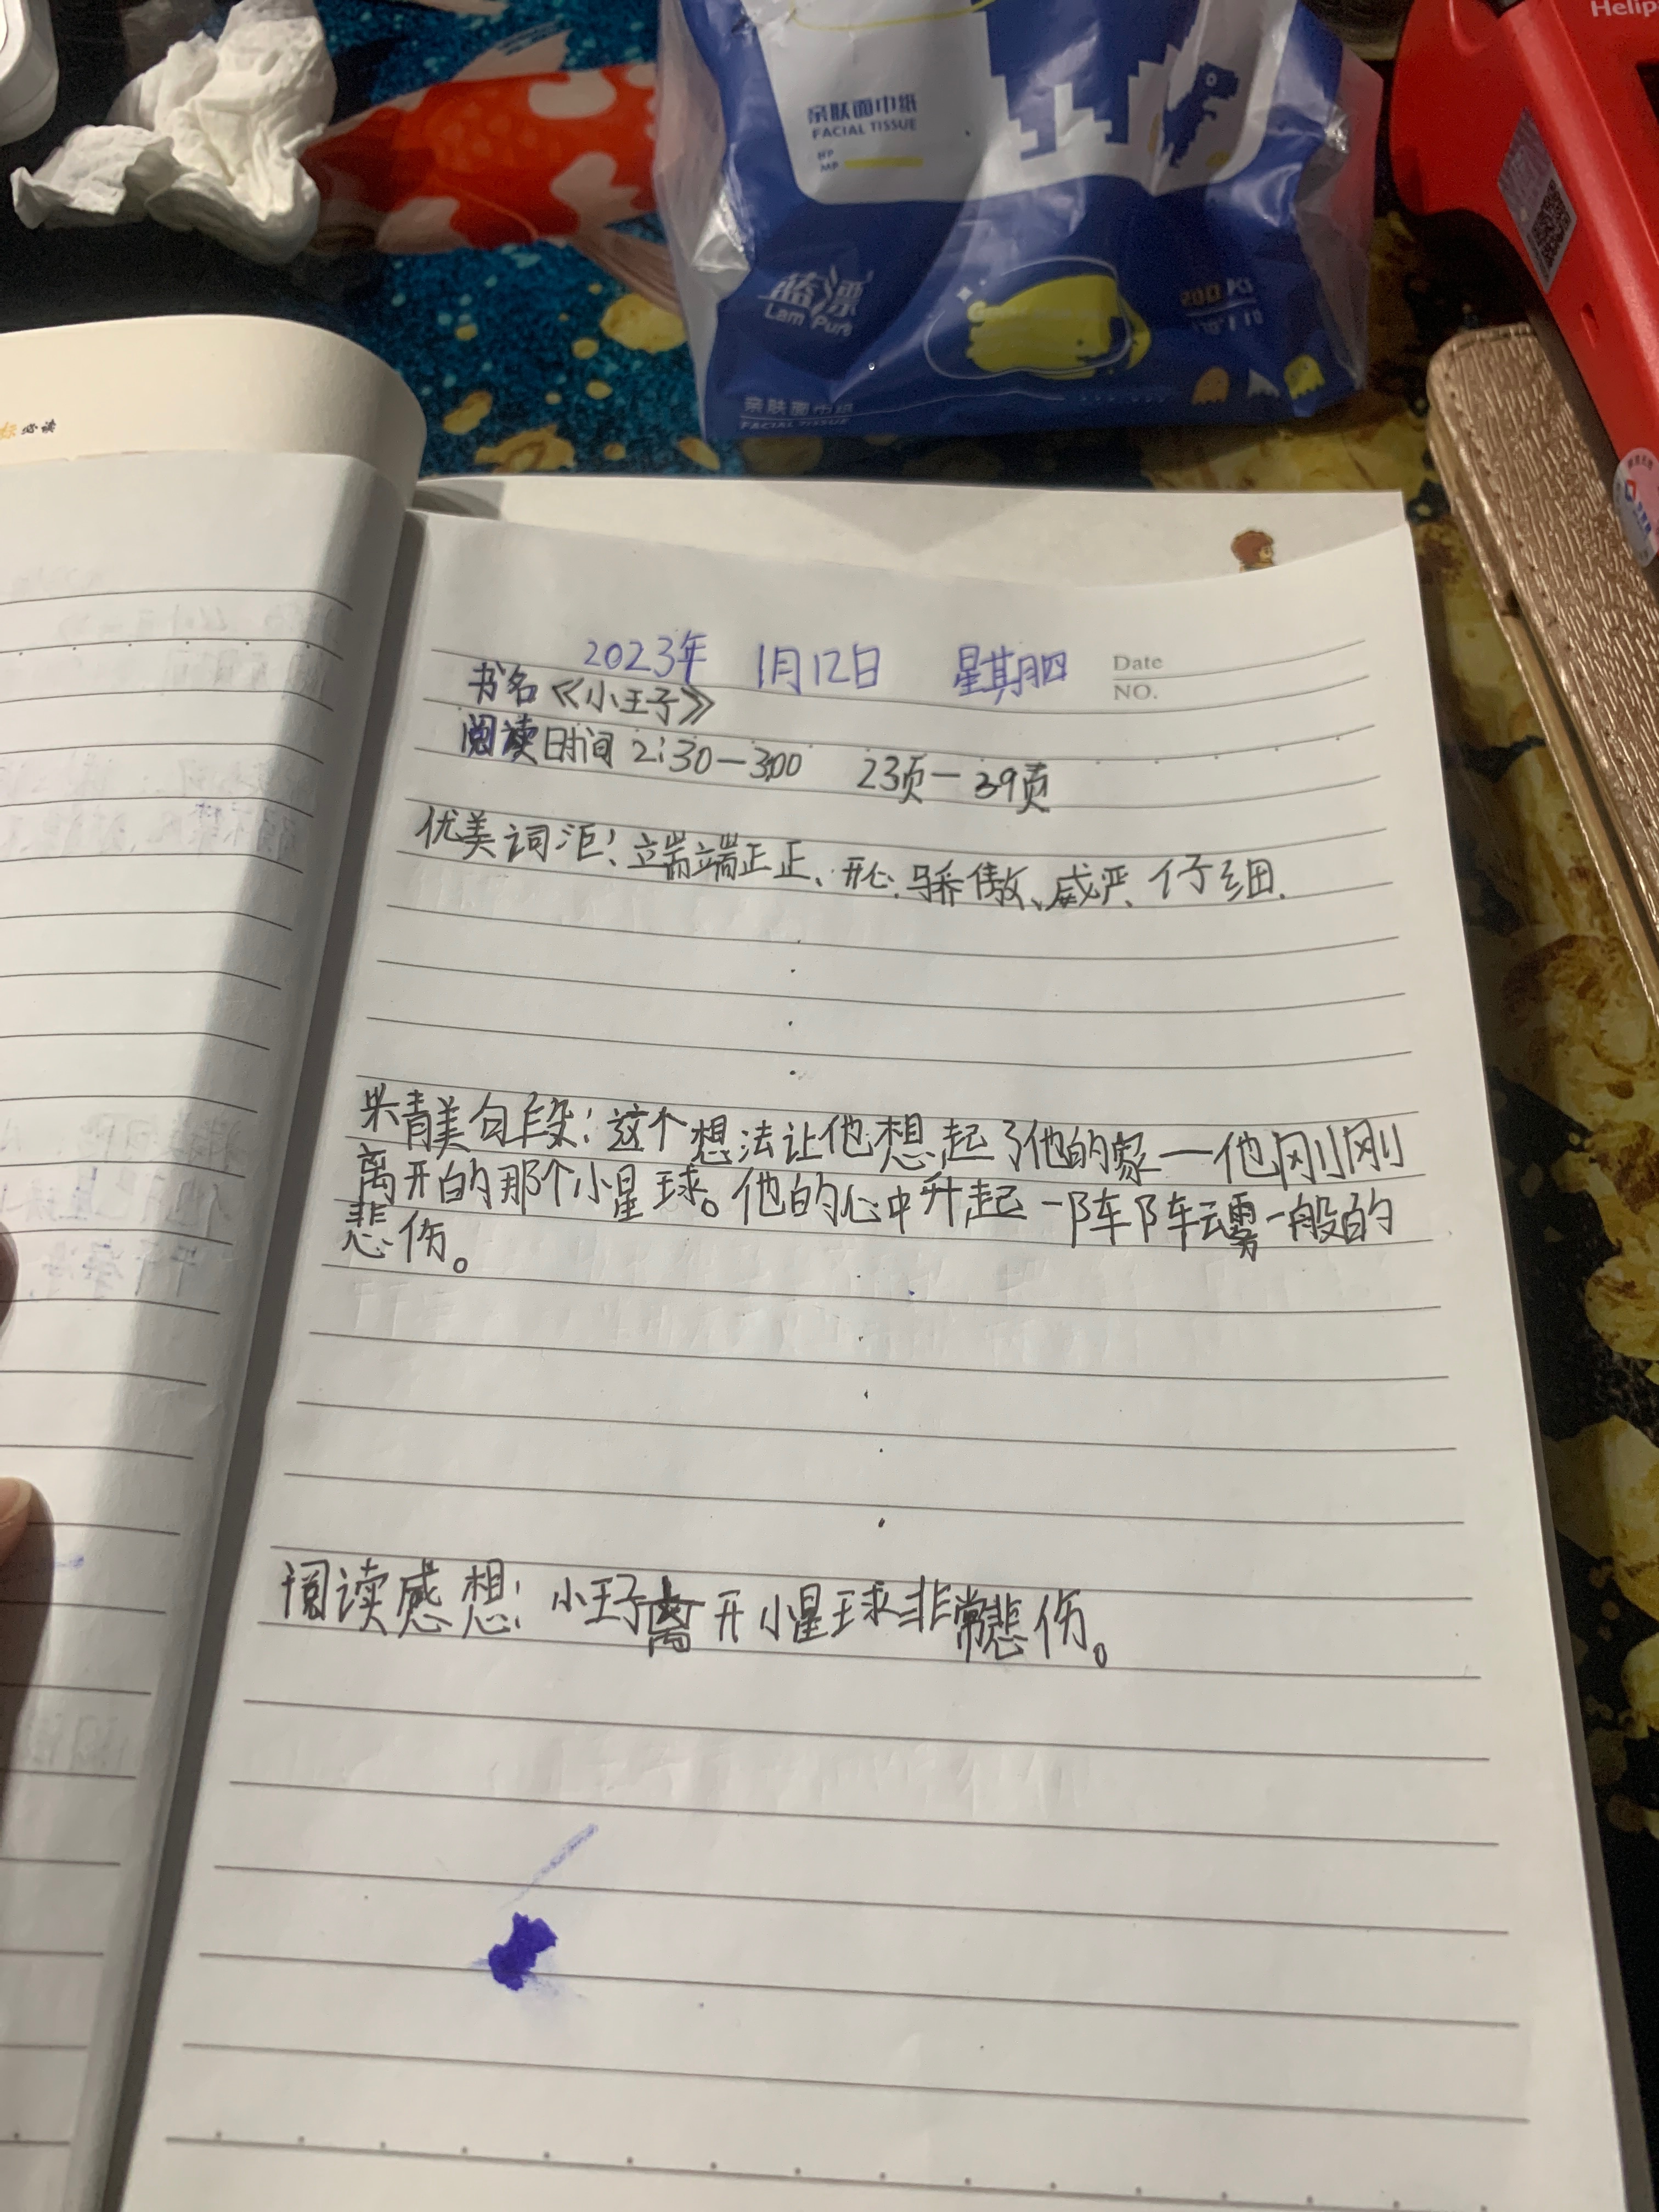 Helip
亲肤面巾纸
FACIAL TISSUE
蓝漂
Lam Pure
亲肤面巾纸
FACIAL TISSUE
标必读
2023年 1月12日 星期四
Date
NO.
书名《小王子》
阅读时间 2:30—300 23页—39页
优美词汇：端端正正、开心.骄傲、威严、仔细.
精美句段：这个想法让他想起了他的家—他刚刚
离开的那个小星球。他的心中升起一阵阵云雾一般的
悲伤。
阅读感想：小王子离开小星球非常悲伤。